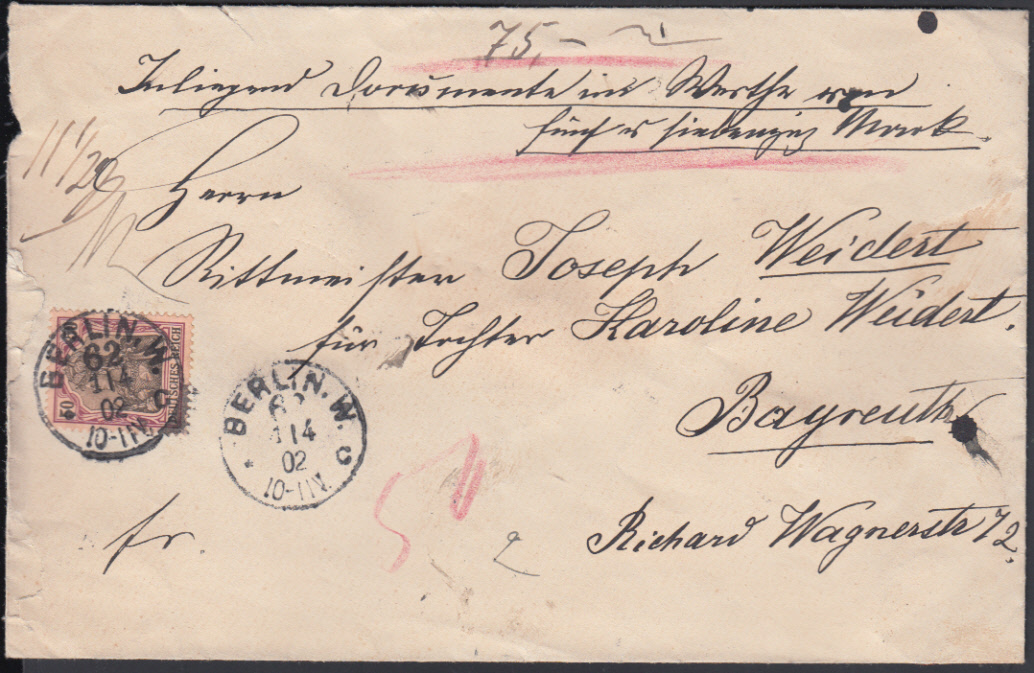 75,-
Inliegend Documente im Werthe von
fünf u siebenzig Mark.
Herrn
Rittmeister Joseph Weidert
für Tochter Karoline Weidert.
Bayreuth
Richard Wagnerstr 72.
fr.
50
DEUTSCHES REICH
BERLIN, W.
62
1 1 4
02
10-11V.
* C
BERLIN. W.
62
1 1 4
02
10-11V.
* C
50